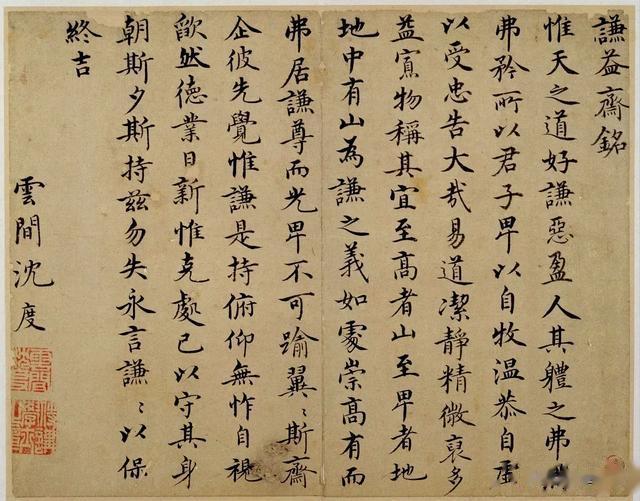 謙益齋銘
惟天之道好謙惡盈人其體之弗
弗矜所以君子卑以自牧溫恭自虛
以受忠告大哉易道潔靜精微裒多
益寡物稱其宜至髙者山至卑者地
地中有山為謙之義如處崇髙有而
弗居謙尊而光卑不可踰翼〻斯齋
企彼先覺惟謙是持俯仰無怍自視
歉然德業日新惟克處己以守其身
朝斯夕斯持茲勿失永言謙〻以保
終吉
雲間沈度